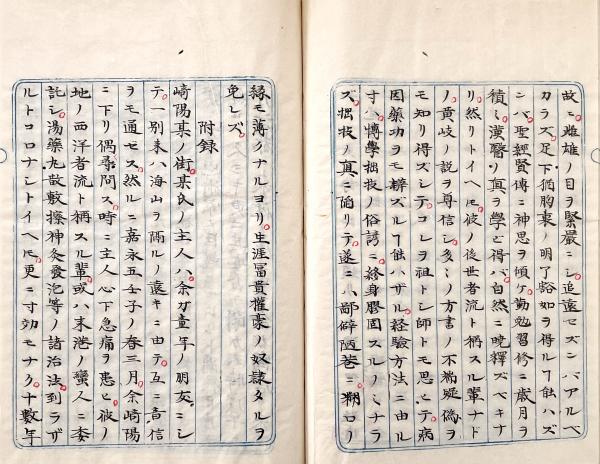 故ニ雌雄ノ目ヲ緊嚴ニシ追遠セズンバアルベ
カラズ足下猶胸裏ノ明了豁如ヲ得ルヿ能ハズ
ンバ聖經賢傳ニ神思ヲ傾ケ勤勉習修ニ歳月ヲ
積ミ漢醫ノ真ヲ學ビ得バ自然ニ曉釋スベキナ
リ然リトイヘ𪜈彼ノ後世者流ト稱スル輩ナド
ノ黄岐ノ説ヲ尊信シ多ミノ方書ノ不稽疑偽ヲ
モ知リ得ズシテコレヲ祖トシ師トモ思ヒテ病
因藥功ヲモ辨ズルヿ能ハザル経験方法ニ由ル
寸ハ博學拙技ノ俗諺ニ終身膠固スルノミナラ
ズ拙技ノ真ニ陷リテ遂ニハ鄙僻陋巷ニ糊口ノ
縁モ薄ノナルヨリ生涯冨貴權豪ノ奴隷タルヲ
免レズ
附録
崎陽某ノ街某氏ノ主人ハ余ガ童年ノ朋友ニシ
テ一別来ハ海山ヲ隔ルノ遠キニ由テ互ニ音信
ヲモ通セス然ルニ嘉永五壬子ノ春三月余崎陽
ニ下リ偶尋問ス時ニ主人心下急痛ヲ患ヒ彼ノ
地ノ西洋者流ト稱スル輩或ハ来港ノ蠻人ニ委
託シ湯藥丸散敷擦神灸發泡等ノ諸治法到ラザ
ルトコロナシトイヘ𪜈更ニ寸効モナク十數年